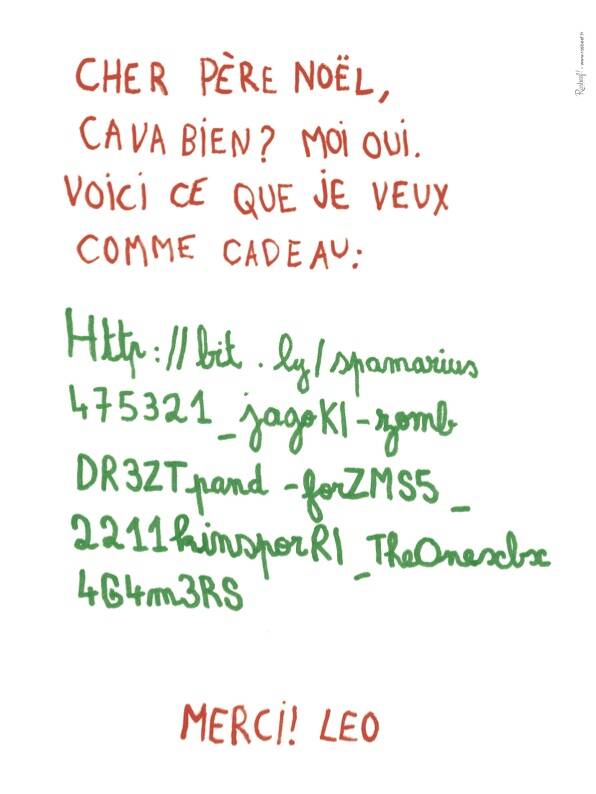 CHER PÈRE NOËL,
CAVA BIEN? MOI OUI.
VOICI CE QUE JE VEUX
COMME CADEAU:
Http://bit.ly/spamarius
475321_jagoKI-zomb
DR3ZTpand-forZMS5_
2211kinsporRI_TheOnexbx
4G4m3RS
MERCI! LEO